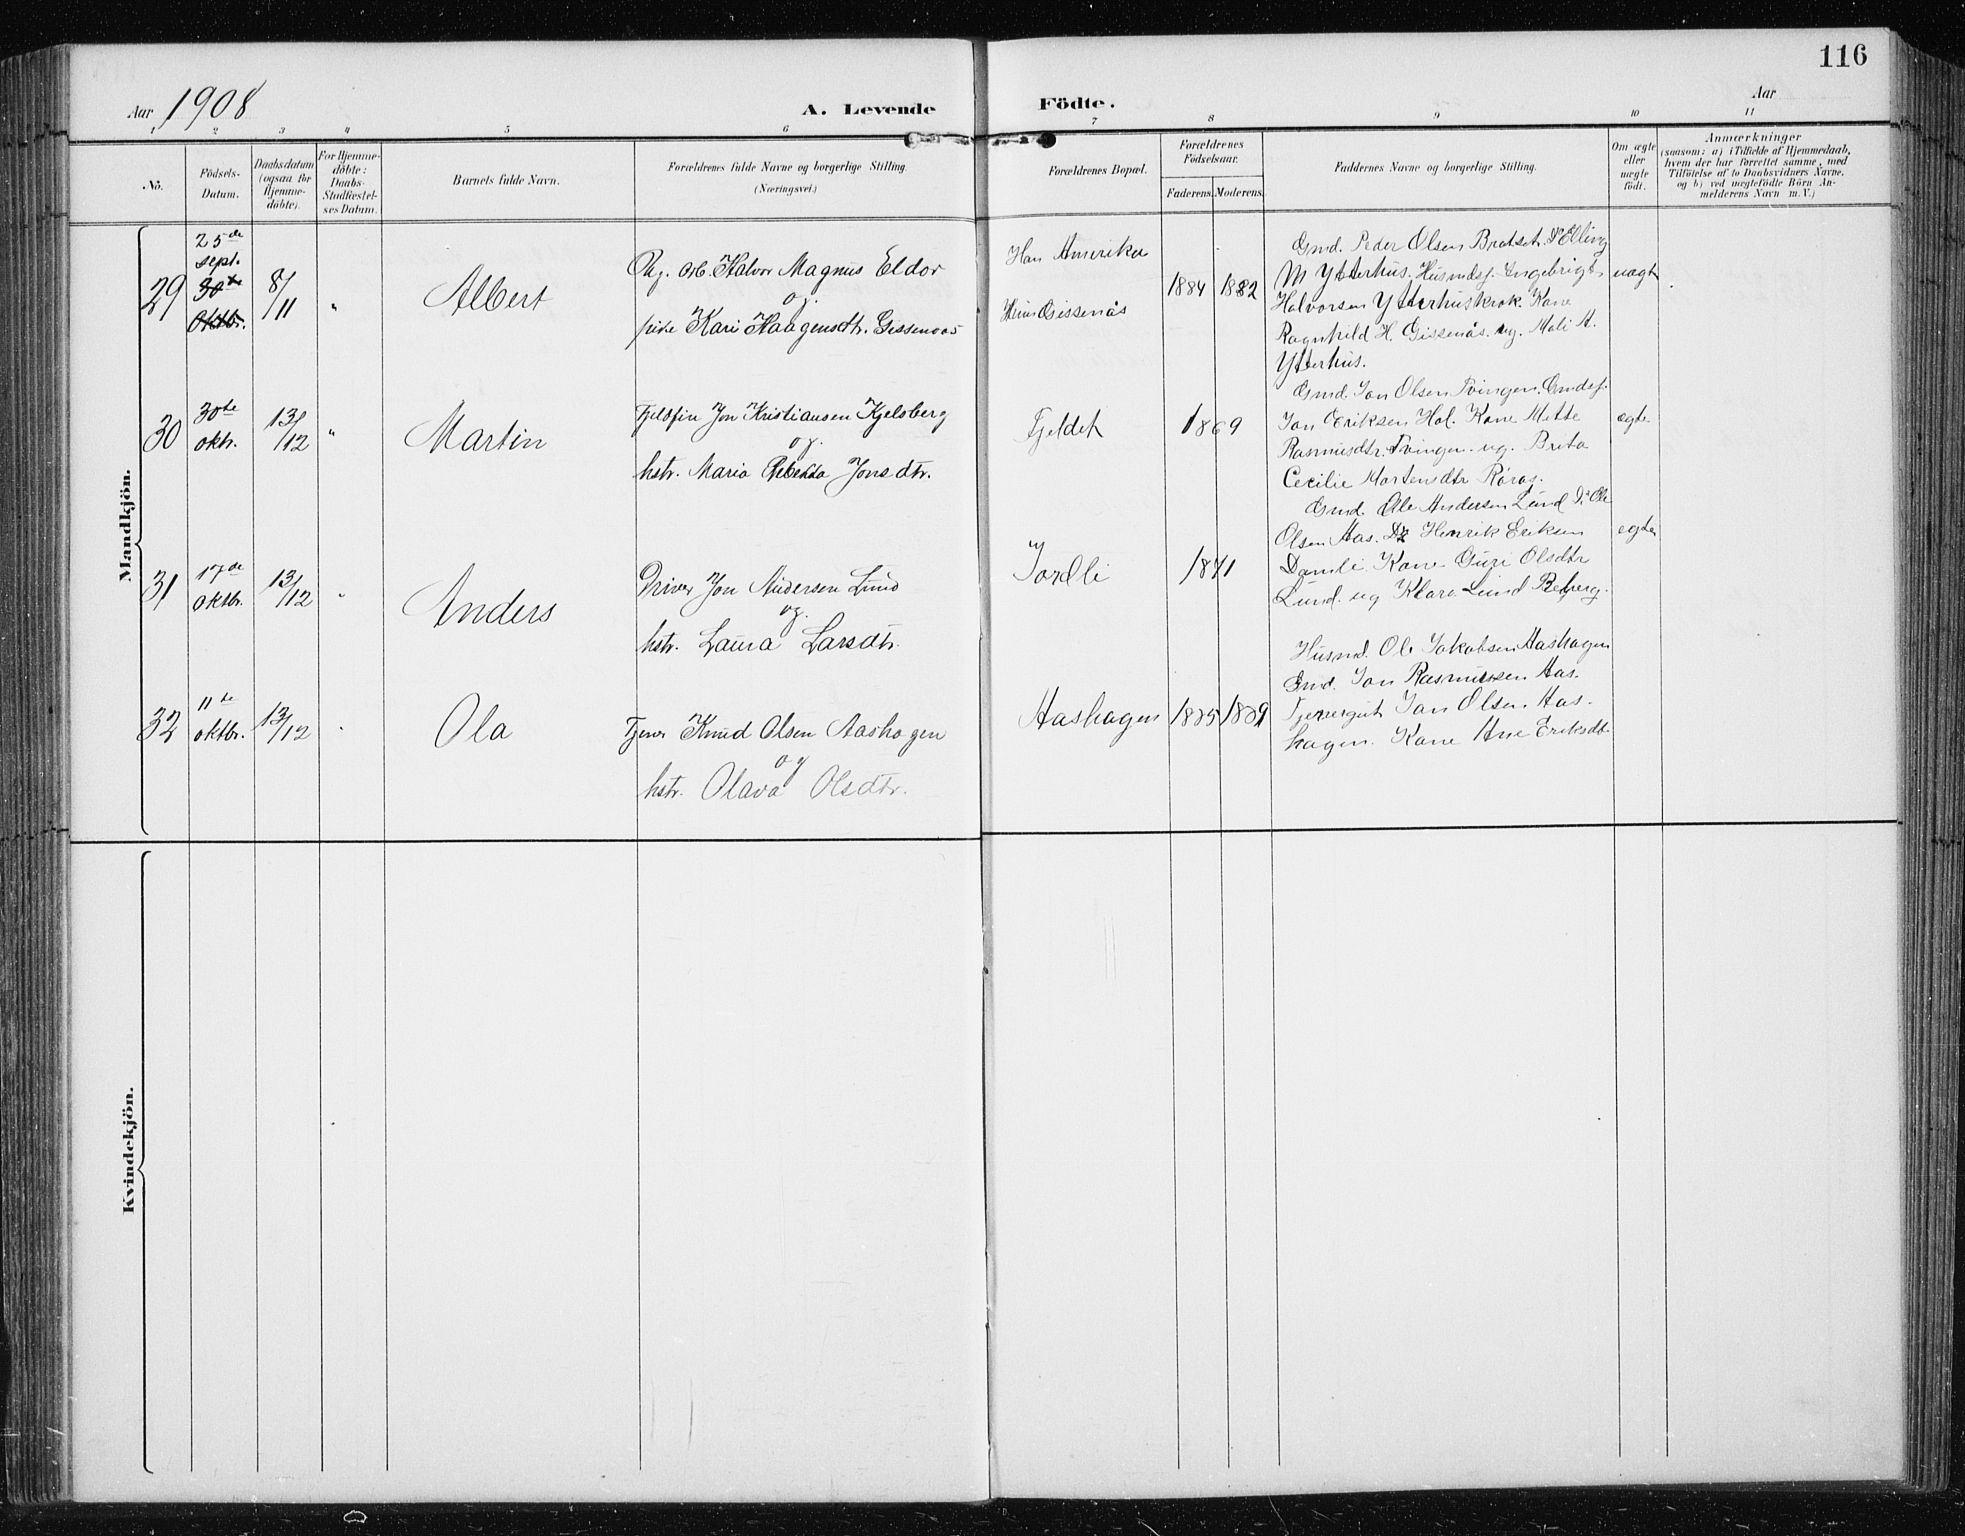 116
Aar 1908
A. Levende
Födte.
Aar
1 2 3 4 5 6 7 8 9 10 11
No.
Födsels-
Datum.
Daabsdatum
(ogsaa for
Hjemme-
döbte).
For Hjemme-
döbte:
Daabs-
Stadfæstel-
ses Datum.
Barnets fulde Navn.
Forældrenes fulde Navne og borgerlige Stilling.
(Næringsvei.)
Forældrenes Bopæl.
Forældrenes
Födselsaar.
Faderens. Moderens.
Faddernes Navne og borgerlige Stilling.
Om ægte
eller
uægte
födt.
Anmærkninger
(saasom: a) i Tilfælde af Hjemmedaab,
hvem der har forrettet samme, med
Tilföielse af to Daabsvidners Navne.
og b) ved uægtefödte Börn An-
melderens Navn m. V.)
Mandkjön.
29
25de
sept.
30te
Oktbr.
8/11
"
Albert
Ug. Arb. Halvor Magnus Eldor
og
pike Kari Haagensdtr. Gissenaas
Han Amerika
Hun Gissenås
1884 1882
Gmd. Peder Olsen Bratset. Do Elling
M Ytterhus. Husmdsf. Ingebrigt
Halvorsen Ytterhuskrok. Kone
Ragnhild H. Gissenås. ug. Mali A.
Ytterhus.
uægte
30
30te
oktr.
13/12
"
Martin
Fjeldfin Jon Kristiansen Kjelsberg
og.
hstr. Maria Rebekka Jonsdtr.
Fjeldet
1869
Gmd. Jon Olsen Tvingen. Gmdsf.
Jon Eriksen Hol. Kone Mette
Rasmusdtr. Tvingen. ug. Brita
Cecilie Mortensdtr Røros.
ægte
31
17de
oktbr.
13/12
"
Anders
Driver Jon Andersen Lund
og.
hstr. Laura Larsdtr.
Jordli
1871
Gmd. Ole Andersen Lund Do Ole
Olsen Aas. Do Henrik Eriksen
Domli Kone Guri Olsdtr
Lund. ug Klara Lund Reberg.
egte
32
11te
oktbr.
13/12
"
Ola
Tjener Knud Olsen Aashagen
og
hstr. Olava Olsdtr.
Aashagen
Husmd. Ole Jakobsen Aashagen
Gmd. Jon Rasmussen Aas.
Tjenergut Jon Olsen Aas-
hagen. Kone Ane Eriksdtr
Kvindekjön.